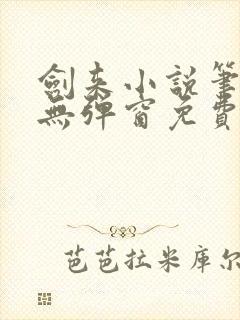 劍来小説筆
無彈窗免費
芭芭拉米库尔